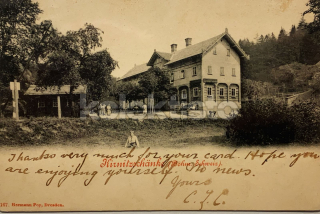 Thanks very much for your card. Hope you
Kirnitzschänke (Böhm. Schweiz).
are enjoying yourself. No news.
Yours
C.J.C.
Hermann Poy, Dresden.